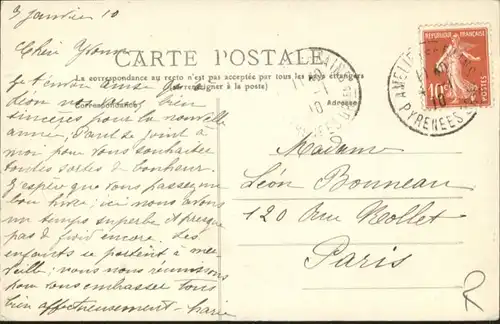 3 janvier 10
Chère Yvonne
CARTE POSTALE
La correspondance au recto n'est pas acceptée par tous les pays étrangers
(se renseigner à la poste)
Correspondance
Adresse
sincères pour la nouvelle
année, Paul se joint à
moi pour vous souhaiter
toutes sortes de bonheur.
J'espère que vous passez un
bon hiver; ici nous avons
un temps superbe et presque
pas de froid encore. Les
enfants se portent à mer-
veille; nous nous réunissons
pour vous embrasser tous
bien affectueusement
Madame
Léon Bonneau
120 Rue Nollet
Paris
REPUBLIQUE FRANÇAISE
10
POSTES
AMELIE
PYRENEES